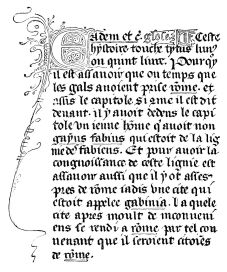 Eadem et c̄ glose. Ceste
hystoire touche tytus liuy
ou quint liure. Pourqͦy
il est assauoir que ou temps que
les gals auoient prise rōme. et
assis le capitole si cōme il est dit
deuant. il y auoit dedens le capi
tole vn ienne hōme qͥ auoit non
gayus fabius qui estoit de la lig
niee des fabiens. Et pour auoir la
congnoissance de ceste lignie est
assauoir aussi que il y ot asses
pres de rōme iadis vne cite qui
estoit appelee gabinia. La quele
cite apres moult de inconueni
ens se rendi a rōme par tel con
uenant que il seroient citoiēs
de rōme.